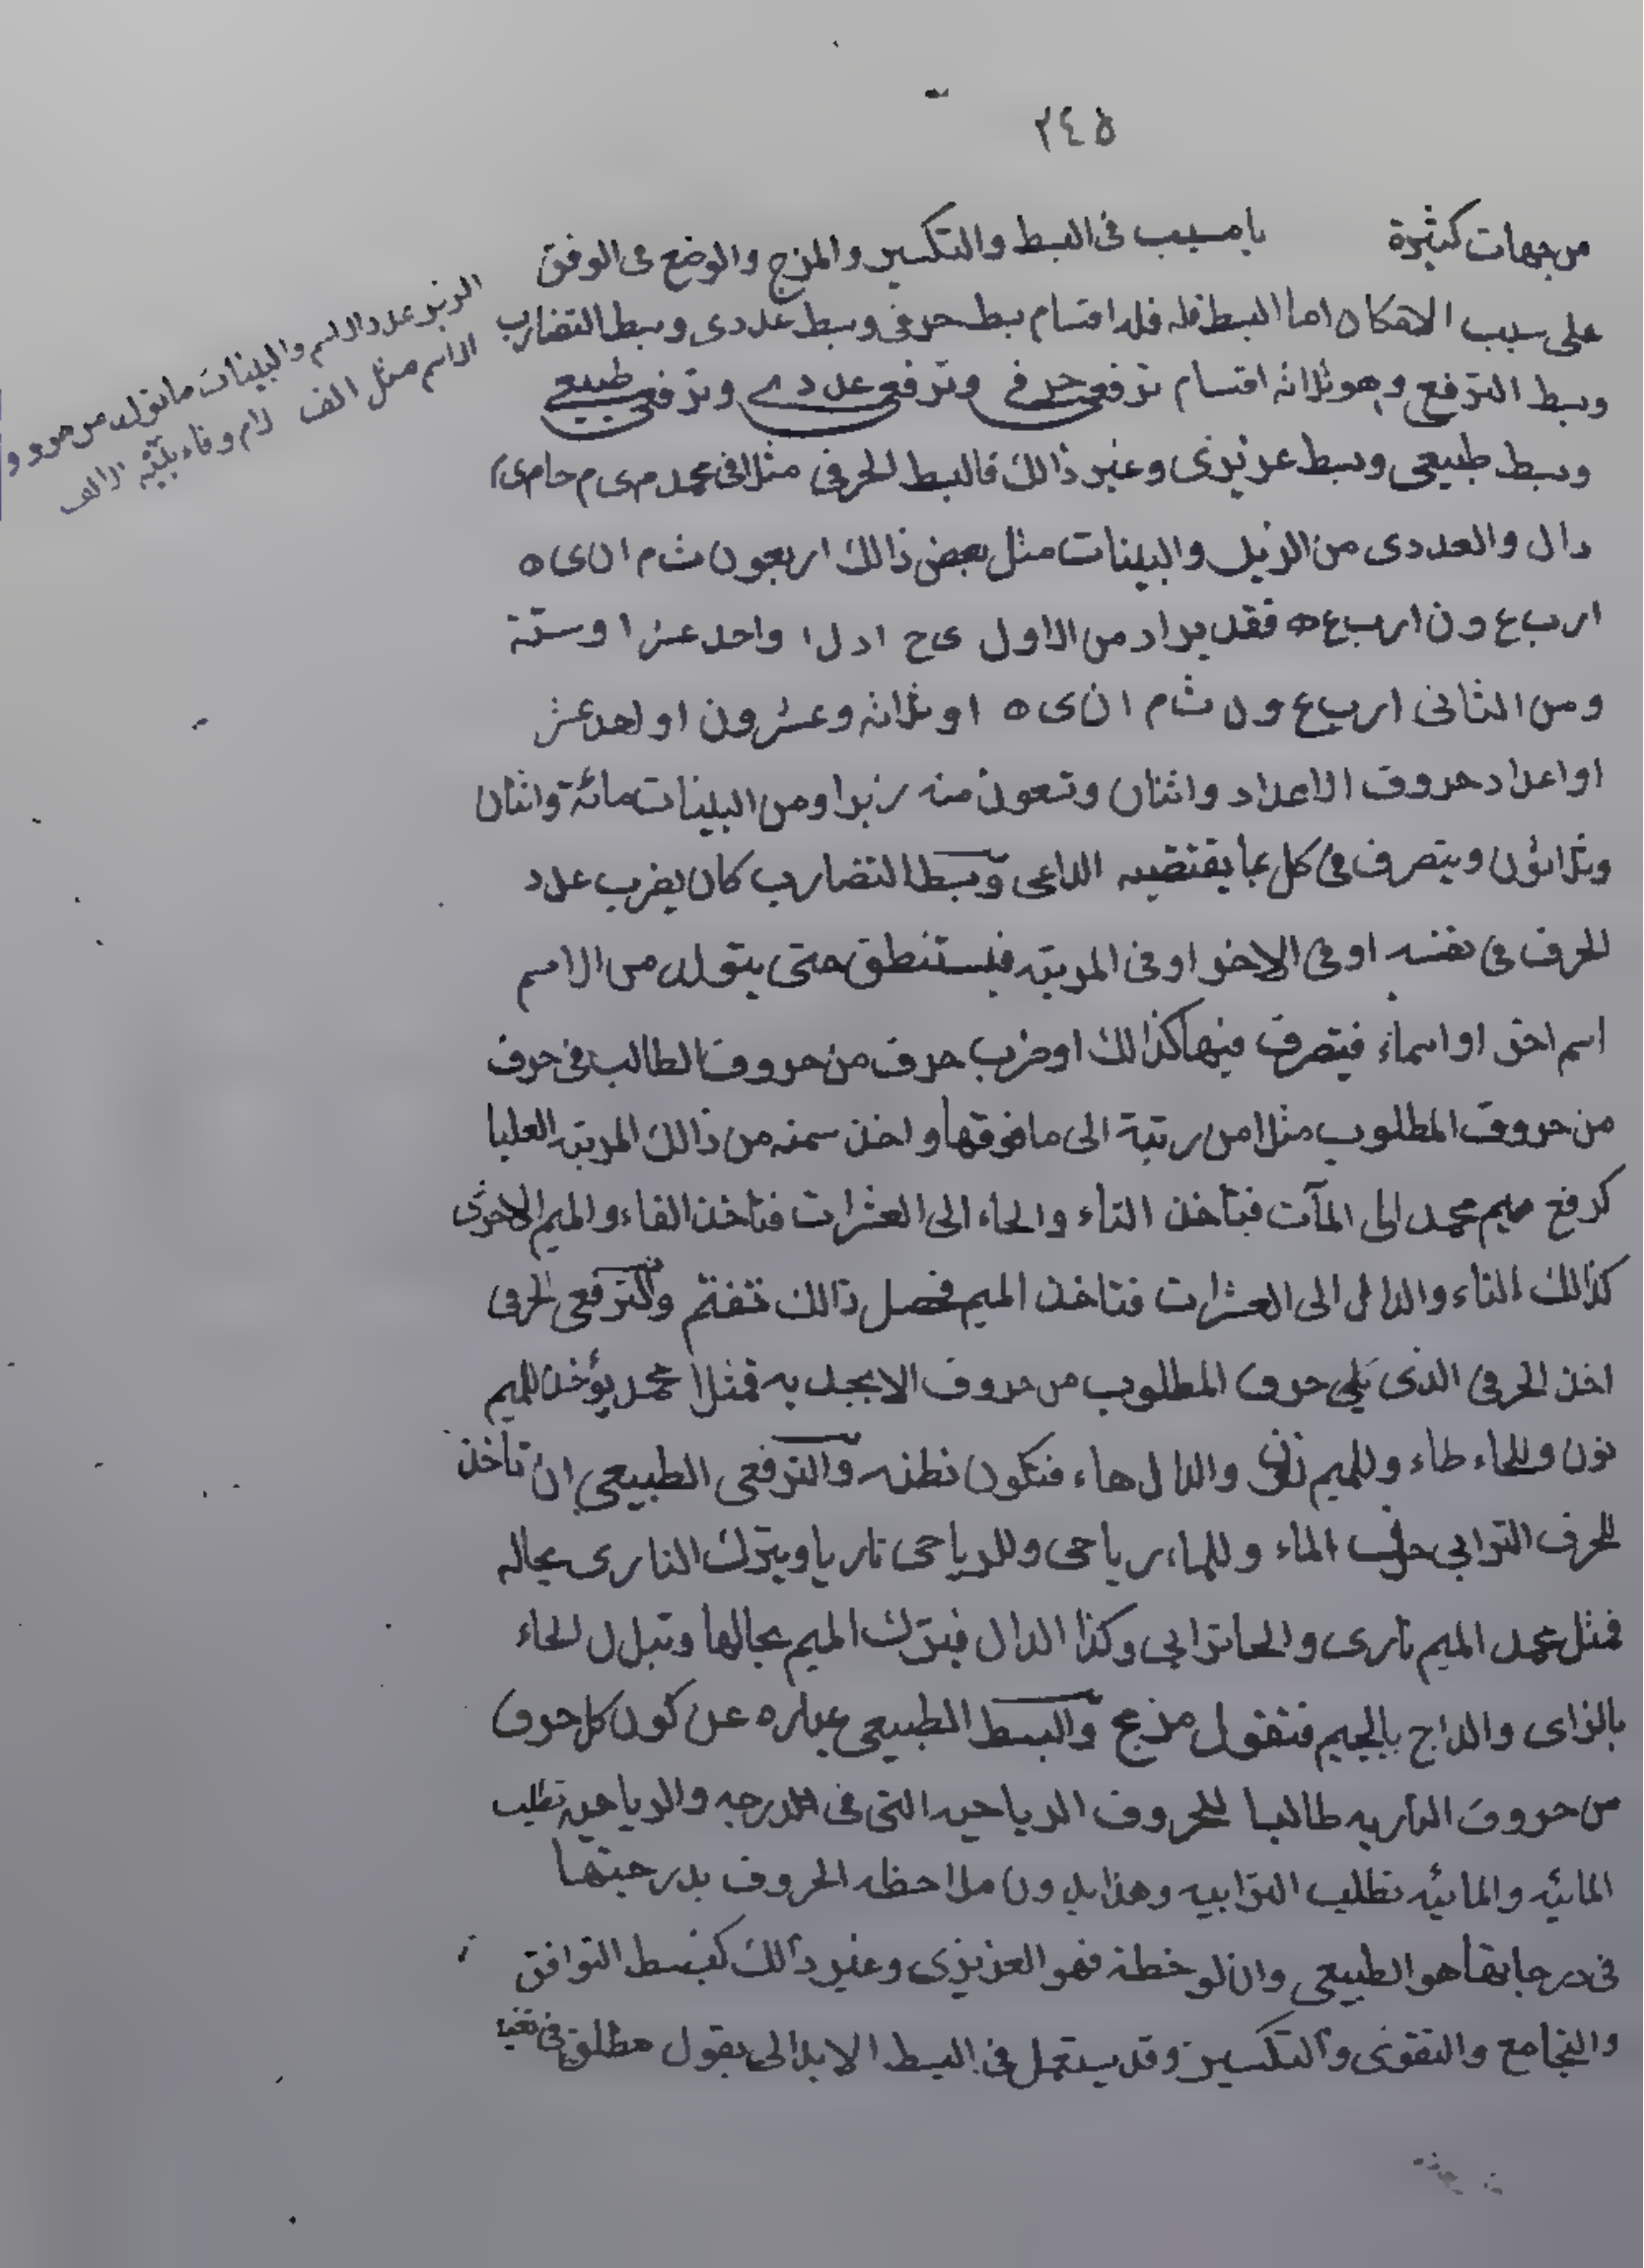 ٢٤٥
من جهات كثيرة يا مسبب فى البسط والتكسير والمزج والوضع فى الوفق
على سبب الامكان اما البسط فله اقسام بسط حرفى وبسط عددى وبسط التضارب
وبسط الترفع وهو ثلاثه اقسام ترفعى حرفى وترفعى عددى وترفعى طبيعى
وبسط طبيعى وبسط عزيزى وغير ذالك فالبسط الحرفى مثلا فى محمد م ى م حا م ى م
دال والعددى من الزبر والبينات مثل بعض ذالك اربعون ث م ا ن ى ه
ا ر ب ع و ن ا ر ب ع ه فقد يراد من الاول ى ح ا د ل ا واحد عشر ا وستة
ومن الثانى ا ر ب ع و ن ث م ا ن ى ه او ثلاثه وعشرون او احد عشر
او اعداد حروف الاعداد واثنان وتسعون منه زبرا ومن البينات مائة واثنان
وثلاثون ويتصرف فى كل بما يقتضيه الداعى وبسط التضارب كان يضرب عدد
الحرف فى نفسه او فى الاخر او فى المرتبه فيستنطق حتى يتولد من الاسم
اسم اخر او اسماء فيتصرف فيها كذالك او ضرب حرف من حروف الطالب فى حرف
من حروف المطلوب مثلا من رتبة الى ما فوقها واخذ سمته من ذالك المرتبه العليا
كرفع ميم محمد الى المآت فتاخذ التاء والحاء الى العشرات فتاخذ الفاء والميم الاخرى
كذالك التاء والدال الى العشرات فتاخذ الميم فحصل ذالك تفتم والترفعى الحرفى
اخذ الحرف الذى يلى حرف المطلوب من حروف الابجديه فمثلا محمد يؤخذ للميم
نون وللحاء طاء وللميم نون والدال هاء فتكون نطنه والترفعى الطبيعى ان تاخذ
للحرف الترابى حرف الماء وللماء رياحى وللرياحى ناريا ويترك النارى بحاله
فمثل محمد الميم نارى والحا ترابى وكذا الدال فيترك الميم بحالها وتبدل الحاء
بالزاى والداج بالجيم فتقول مزمج والبسط الطبيعى عباره عن كون كل حرف
من حروف الناريه طالبا للحروف الرياحيه التى فى الدرجه والرياحيه تطلب
المائيه والمائيه تطلب الترابيه وهذا بدون ملاحظه الحروف بدرجتها
فى درجاتها هو الطبيعى وان لوحظة فهو العزيزى وغير ذالك كبسط التوافق
والتجامع والتقوى والتكسير وقد يستعمل فى البسط الابدالى بقول مطلق فى
الزبر عدد الاسم والبينات ما تولد من حروف
الاسم مثل الف لام وفاء بينيه الالف